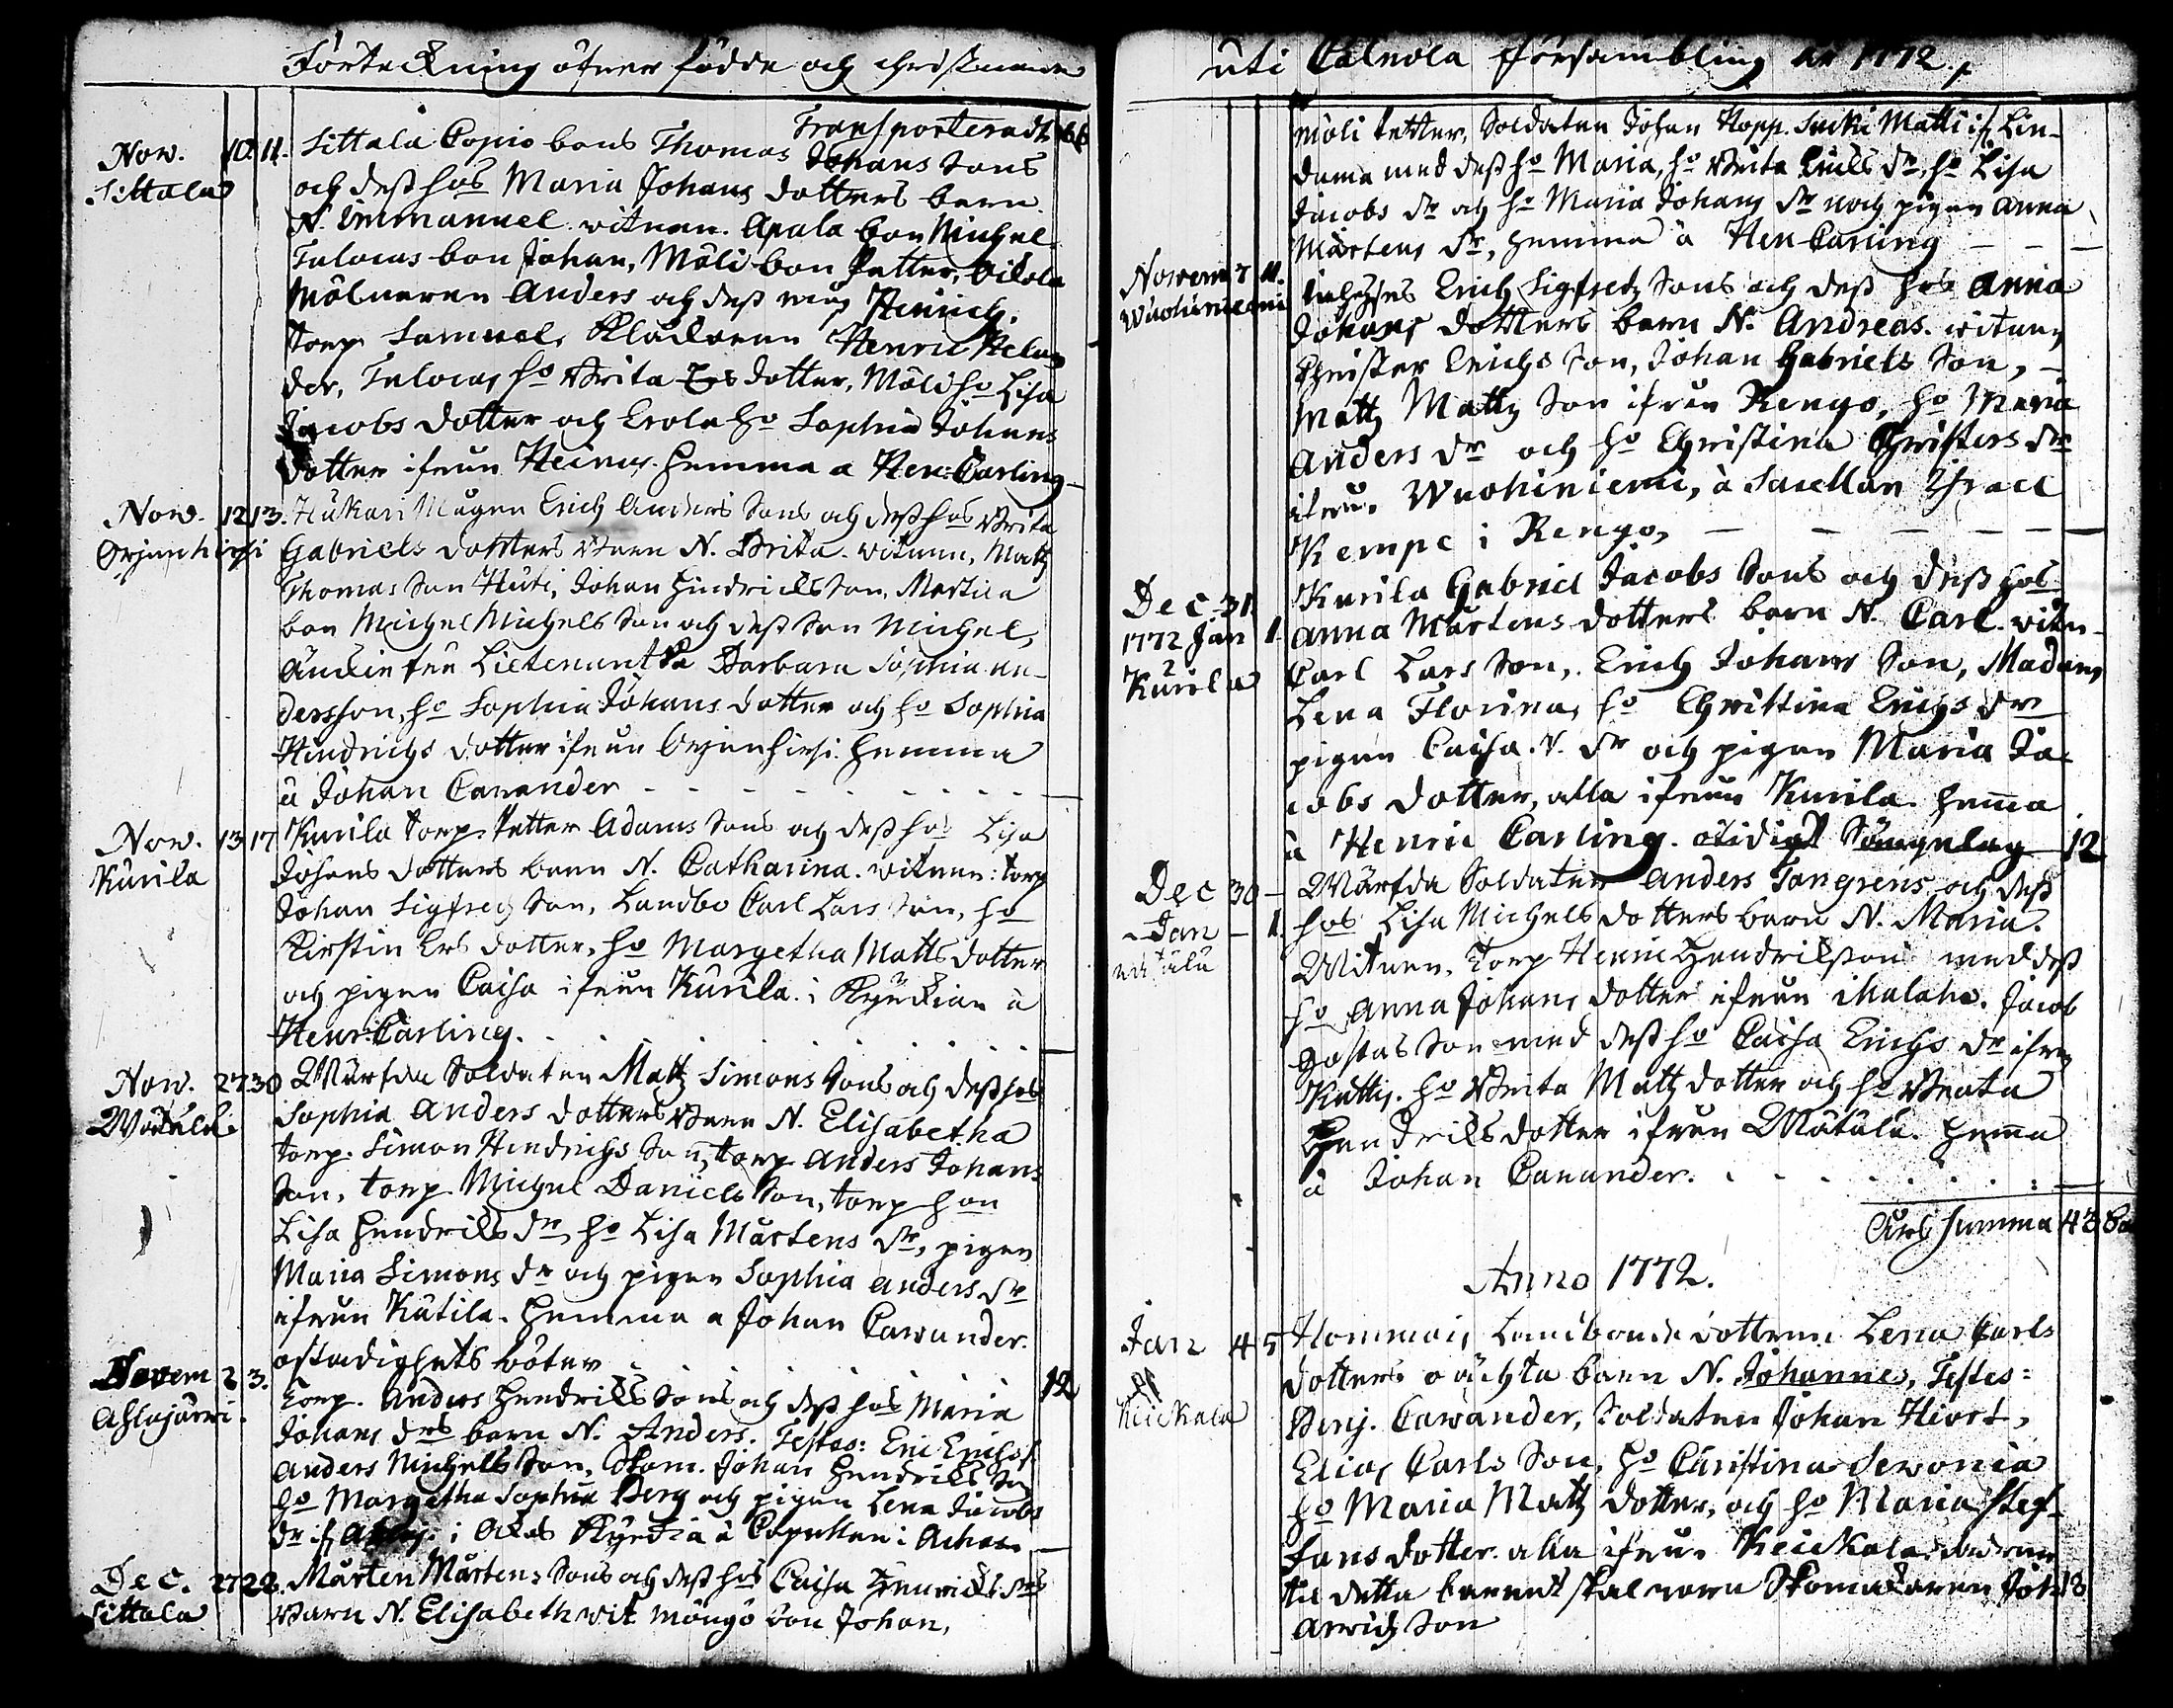 Förteckning öfver födde och christnade
Transporteradt 66
Nov. 10. 11. Sittala Copio bons Thomas Johans Sons
Sittala och dess hos Maria Johans dotters barn
N. Immanuel. witnen. Apala bon Michel
Tulocas bon Johan, Möli bon Petter,
Mölnaren Anders och dess måg Henrich.
torp. Samuel, Klåckaren Henric Helan
der, Tulocas ho Brita Ers dotter, Möli ho Lisa
Jacobs dotter och Erola ho Sophia Johans
dotter ifrån Heinus. hemma a Hen: Carling
Nov. 12 13. Hukari Mågen Erich Anders Sons och dess hos Brita
Orjanhirsi Gabriels dotters Barn N. Brita. witnen, Matz
Thomas Son Huti, Johan Hindrichs Son, Martila
bon Michel Michels Son och dess Son Michel,
Lieutenantska Barbara Sophia An-
dersson, ho Sophia Johans dotter och ho Sophia
Hindrichs dotter ifrån Orjanhirsi. hemma
a Johan Cavander
Nov. 13 17 Kurila torp. Petter Adams Sons och dess hos Lisa
Kurila Johans dotters barn N. Catharina. witnen: torp
Johan Sigfreds Son, Landbo Carl Lars Son, ho
Kirstin Ers dotter, ho Margetha Matts dotter
och pigan Caisa ifrån Kurila. i Kyrkian a
Henr: Carling.
Nov. 27. 30 Wärfda Soldaten Matz Simons Sons och dess hos
Sophia Anders dotters Barn N. Elisabetha
torp. Simon Hindrichs Son, torp Anders Johans
Son, torp. Michel Daniels Son, torp hon
Lisa Hendrichs dr, ho Lisa Mårtens dr, pigan
Maria Simons dr och pigan Sophia Anders dr
ifrån Kutila. hemma a Johan Cawander.
ostadighets böter 12
Novem 2 3. torp. Anders Hendrichs Sons och dess hos Maria
Ahlajärvi. Johans drs barn N. Anders. Testes: Eric Erichss.
Anders Michels Son, Skom. Johan Hendrichs Son
ho Margetha Sophia Berg och pigan Lena Jacobs
dr if i Ackas Kyrckia a Capellan i Achas
Dec. 27 28. Mårten Mårtens Sons och dess hos Caisa Henrichs drs
Sittala Barn N. Elisabeth wit Möngö Bon Johan,
uti Calvola Försambling År 1772.
Möli Petter, Soldaten Johan Hopp. Matti if Lin-
dama med dess ho Maria, ho Brita Erichs dr, ho Lisa
Jacobs dr och ho Maria Johans dr och pigan Anna
Mårtens dr, hemma a Hen Carling
Novem 7 11. Erich Sigfreds Sons och dess hos Anna
Wuohiniemi Johans dotters barn N. Andreas. witnen
Christer Erichs Son, Johan Gabriels Son,
Matz Matz Son ifrån Rengo, ho Maria
Anders dr och ho Christina Christers dr
ifrån Wuohiniemi, a Sacellan Israel
Kempe i Rengo,
Dec. 31 Kurila Gabriel Jacobs Sons och dess hos
1772 Jan 1. Anna Mårtens dotters barn N. Carl. witn-
Kurila Carl Lars Son, Erich Johans Son, Madam
Lena Florina, ho Christina Erichs dr
pigan Caisa. N. dr och pigan Maria Ja-
cobs dotter, alla ifrån Kurila. hemma
a Henric Carling. otidigt Sängelag 12
Dec 30 Wärfda Soldaten Anders Tongrens och dess
Jan 1. hos Lisa Michels dotters barn N. Maria.
Witnen. Torp Henric Hendrichson med dess
ho Anna Johans dotter ifrån Malaho. Jacob
Gostas Son med dess ho Caisa Erichs dr ifrån
ho Brita Matz dotter och ho Beata
Hendrichs dotter ifrån Måtala. hemma
a Johan Canander.
Års Summa
Anno 1772.
Jan 4 5 Hommais Landbonde dottren Lena Carls
Keickala dotters oächta barn N. Johannes, Testes:
Benj. Cawander, Soldaten Johan Hiort,
Elias Carls Son, ho Christina Sewonia
ho Maria Matz dotter, och ho Maria Stef-
fans dotter. alla ifrån Keickala.
til detta barnet skal vara Skomakaren Joh
Arvids Son